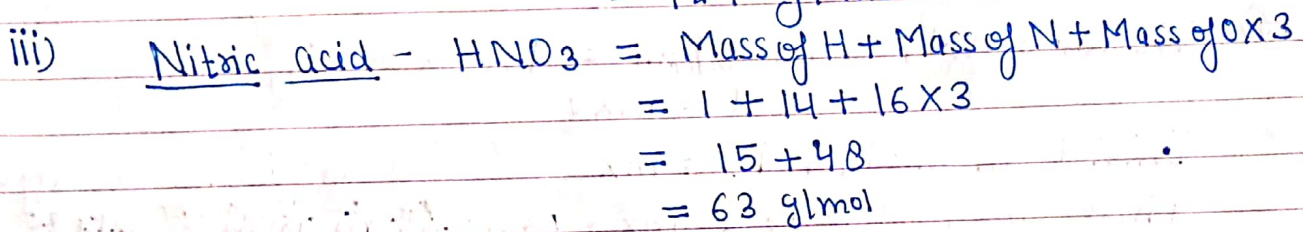 iii) Nitric acid - HNO3 = Mass of H + Mass of N + Mass of O X 3
= 1 + 14 + 16 X 3
= 15 + 48
= 63 g/mol